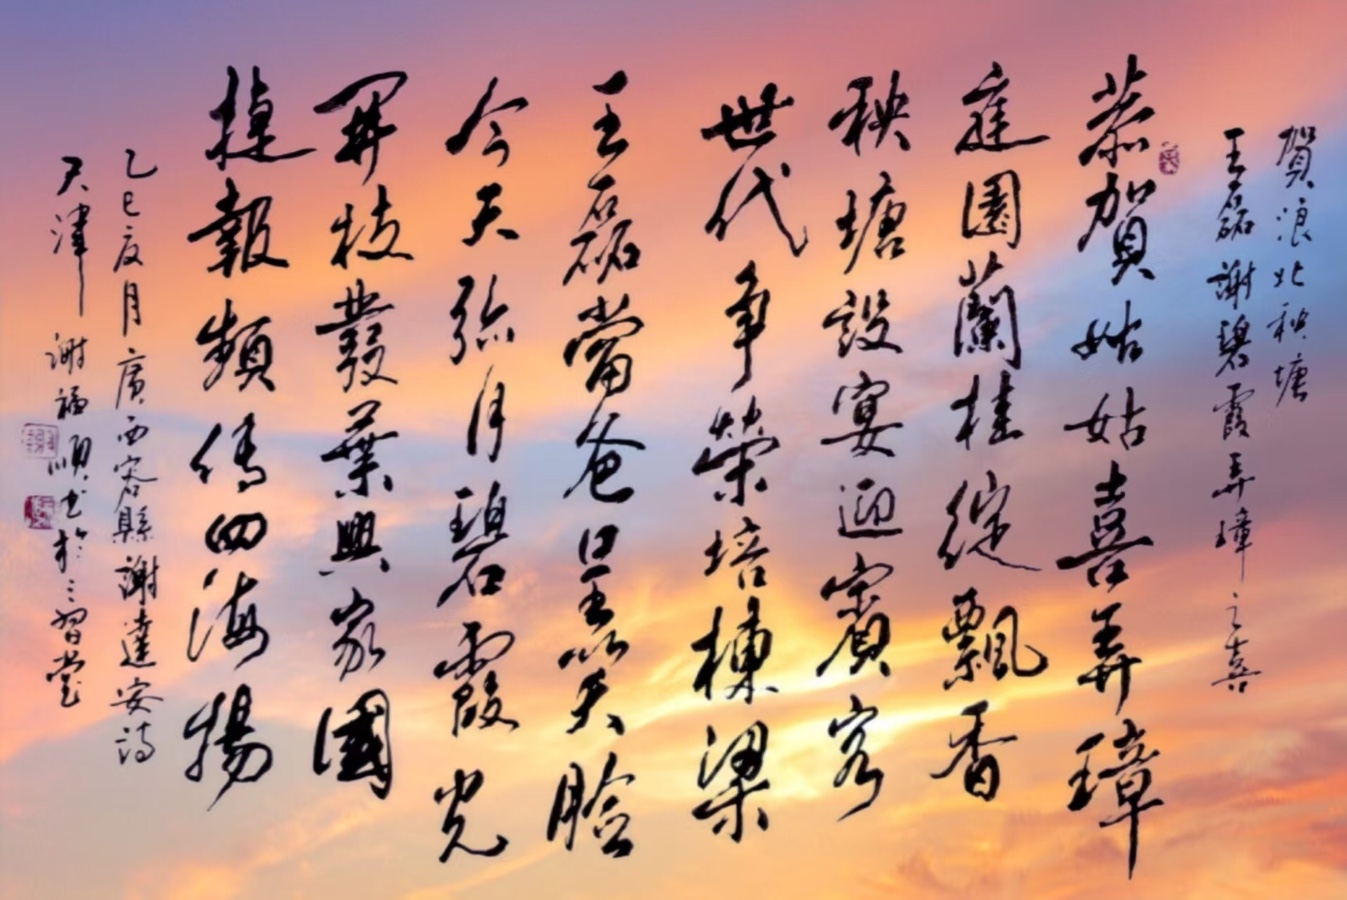 賀浪北秧塘
王磊謝碧霞弄璋之喜
恭賀姑姑喜弄璋
庭園蘭桂綻飄香
秧塘設宴迎賓客
世代争榮培棟梁
王磊當爸呈笑臉
今天弥月碧霞光
開枝發葉興家國
捷報頻傳四海揚
乙巳夏月廣西容縣謝達安詩
天津謝福順書於三習堂